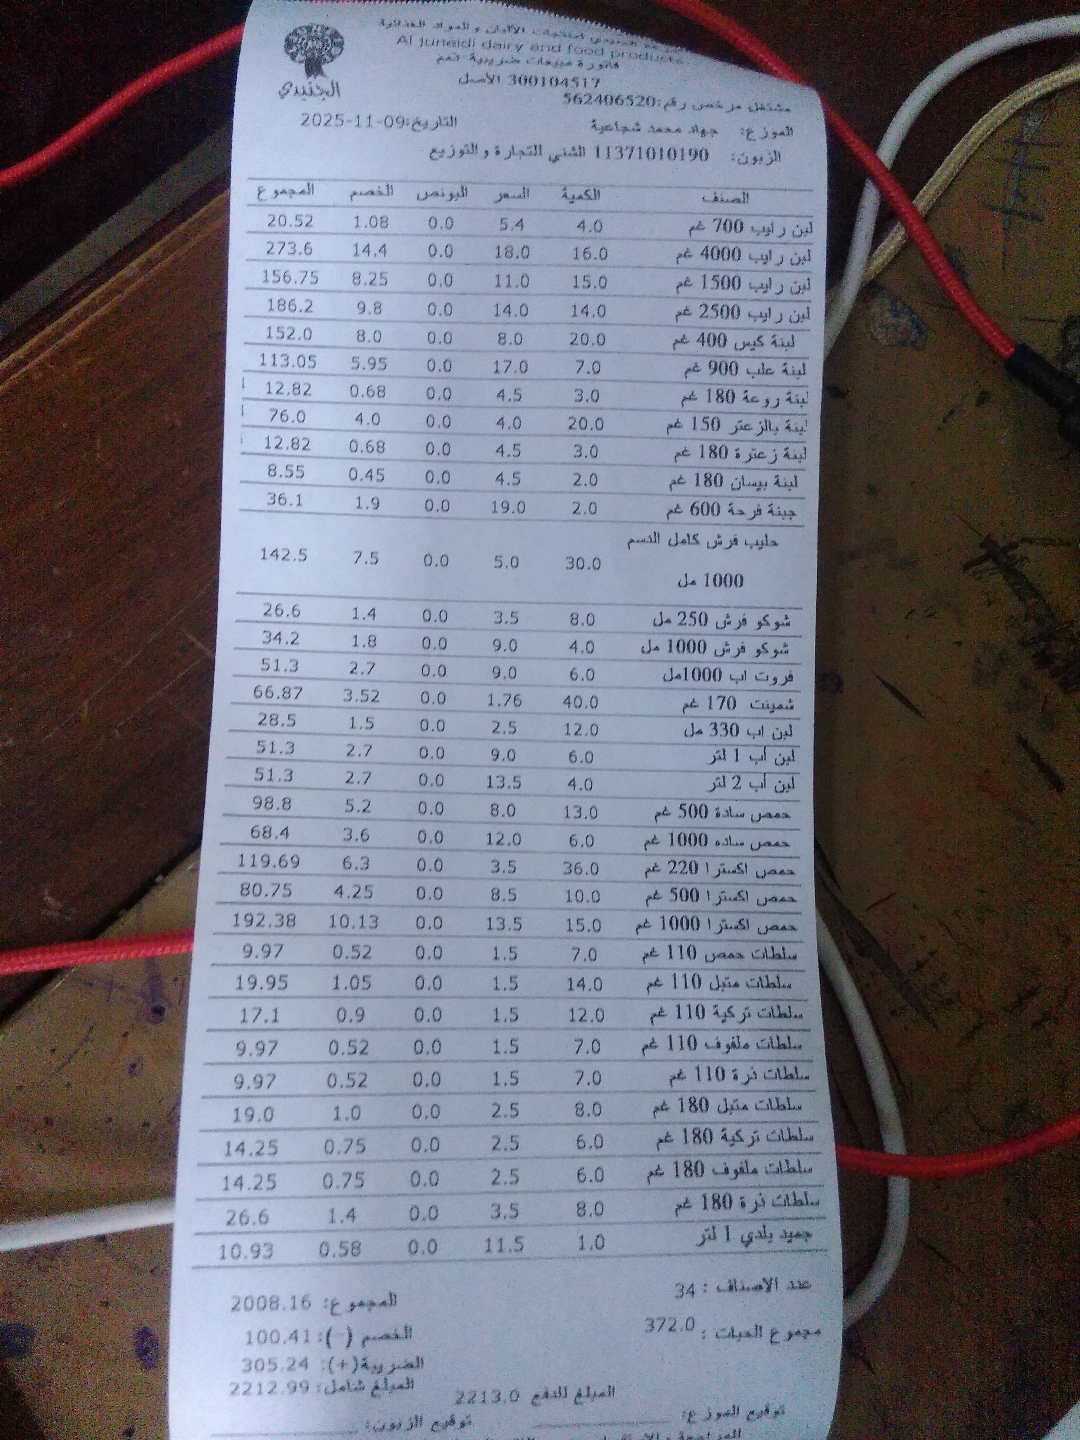 الجنيدي
منتجات الألبان و المواد الغذائية
Al juneidi dairy and food products
فاتورة مبيعات ضريبية
300104517 الأصل
مشتغل مرخص رقم:562406520
الموزع: جهاد محمد شجاعية التاريخ:2025-11-09
الزبون: 11371010190 الشني التجارة و التوزيع
الصنف الكمية السعر البونص الخصم المجموع
لبن رايب 700 غم 4.0 5.4 0.0 1.08 20.52
لبن رايب 4000 غم 16.0 18.0 0.0 14.4 273.6
لبن رايب 1500 غم 15.0 11.0 0.0 8.25 156.75
لبن رايب 2500 غم 14.0 14.0 0.0 9.8 186.2
لبنة كيس 400 غم 20.0 8.0 0.0 8.0 152.0
لبنة علب 900 غم 7.0 17.0 0.0 5.95 113.05
لبنة روعة 180 غم 3.0 4.5 0.0 0.68 12.82
لبنة بالزعتر 150 غم 20.0 4.0 0.0 4.0 76.0
لبنة زعترة 180 غم 3.0 4.5 0.0 0.68 12.82
لبنة بيسان 180 غم 2.0 4.5 0.0 0.45 8.55
جبنة فرحة 600 غم 2.0 19.0 0.0 1.9 36.1
حليب فرش كامل الدسم
1000 مل 30.0 5.0 0.0 7.5 142.5
شوكو فرش 250 مل 8.0 3.5 0.0 1.4 26.6
شوكو فرش 1000 مل 4.0 9.0 0.0 1.8 34.2
فروت اب 1000مل 6.0 9.0 0.0 2.7 51.3
شمينت 170 غم 40.0 1.76 0.0 3.52 66.87
لبن اب 330 مل 12.0 2.5 0.0 1.5 28.5
لبن أب 1 لتر 6.0 9.0 0.0 2.7 51.3
لبن أب 2 لتر 4.0 13.5 0.0 2.7 51.3
حمص سادة 500 غم 13.0 8.0 0.0 5.2 98.8
حمص ساده 1000 غم 6.0 12.0 0.0 3.6 68.4
حمص اكسترا 220 غم 36.0 3.5 0.0 6.3 119.69
حمص اكسترا 500 غم 10.0 8.5 0.0 4.25 80.75
حمص اكسترا 1000 غم 15.0 13.5 0.0 10.13 192.38
سلطات حمص 110 غم 7.0 1.5 0.0 0.52 9.97
سلطات متبل 110 غم 14.0 1.5 0.0 1.05 19.95
سلطات تركية 110 غم 12.0 1.5 0.0 0.9 17.1
سلطات ملفوف 110 غم 7.0 1.5 0.0 0.52 9.97
سلطات ذرة 110 غم 7.0 1.5 0.0 0.52 9.97
سلطات متبل 180 غم 8.0 2.5 0.0 1.0 19.0
سلطات تركية 180 غم 6.0 2.5 0.0 0.75 14.25
سلطات ملفوف 180 غم 6.0 2.5 0.0 0.75 14.25
سلطات ذرة 180 غم 8.0 3.5 0.0 1.4 26.6
جميد بلدي 1 لتر 1.0 11.5 0.0 0.58 10.93
عدد الاصناف : 34 المجموع: 2008.16
مجموع الحبات : 372.0 الخصم (-): 100.41
الضريبة(+): 305.24
المبلغ للدفع 2213.0 المبلغ شامل: 2212.99
توقيع الموزع: توقيع الزبون: